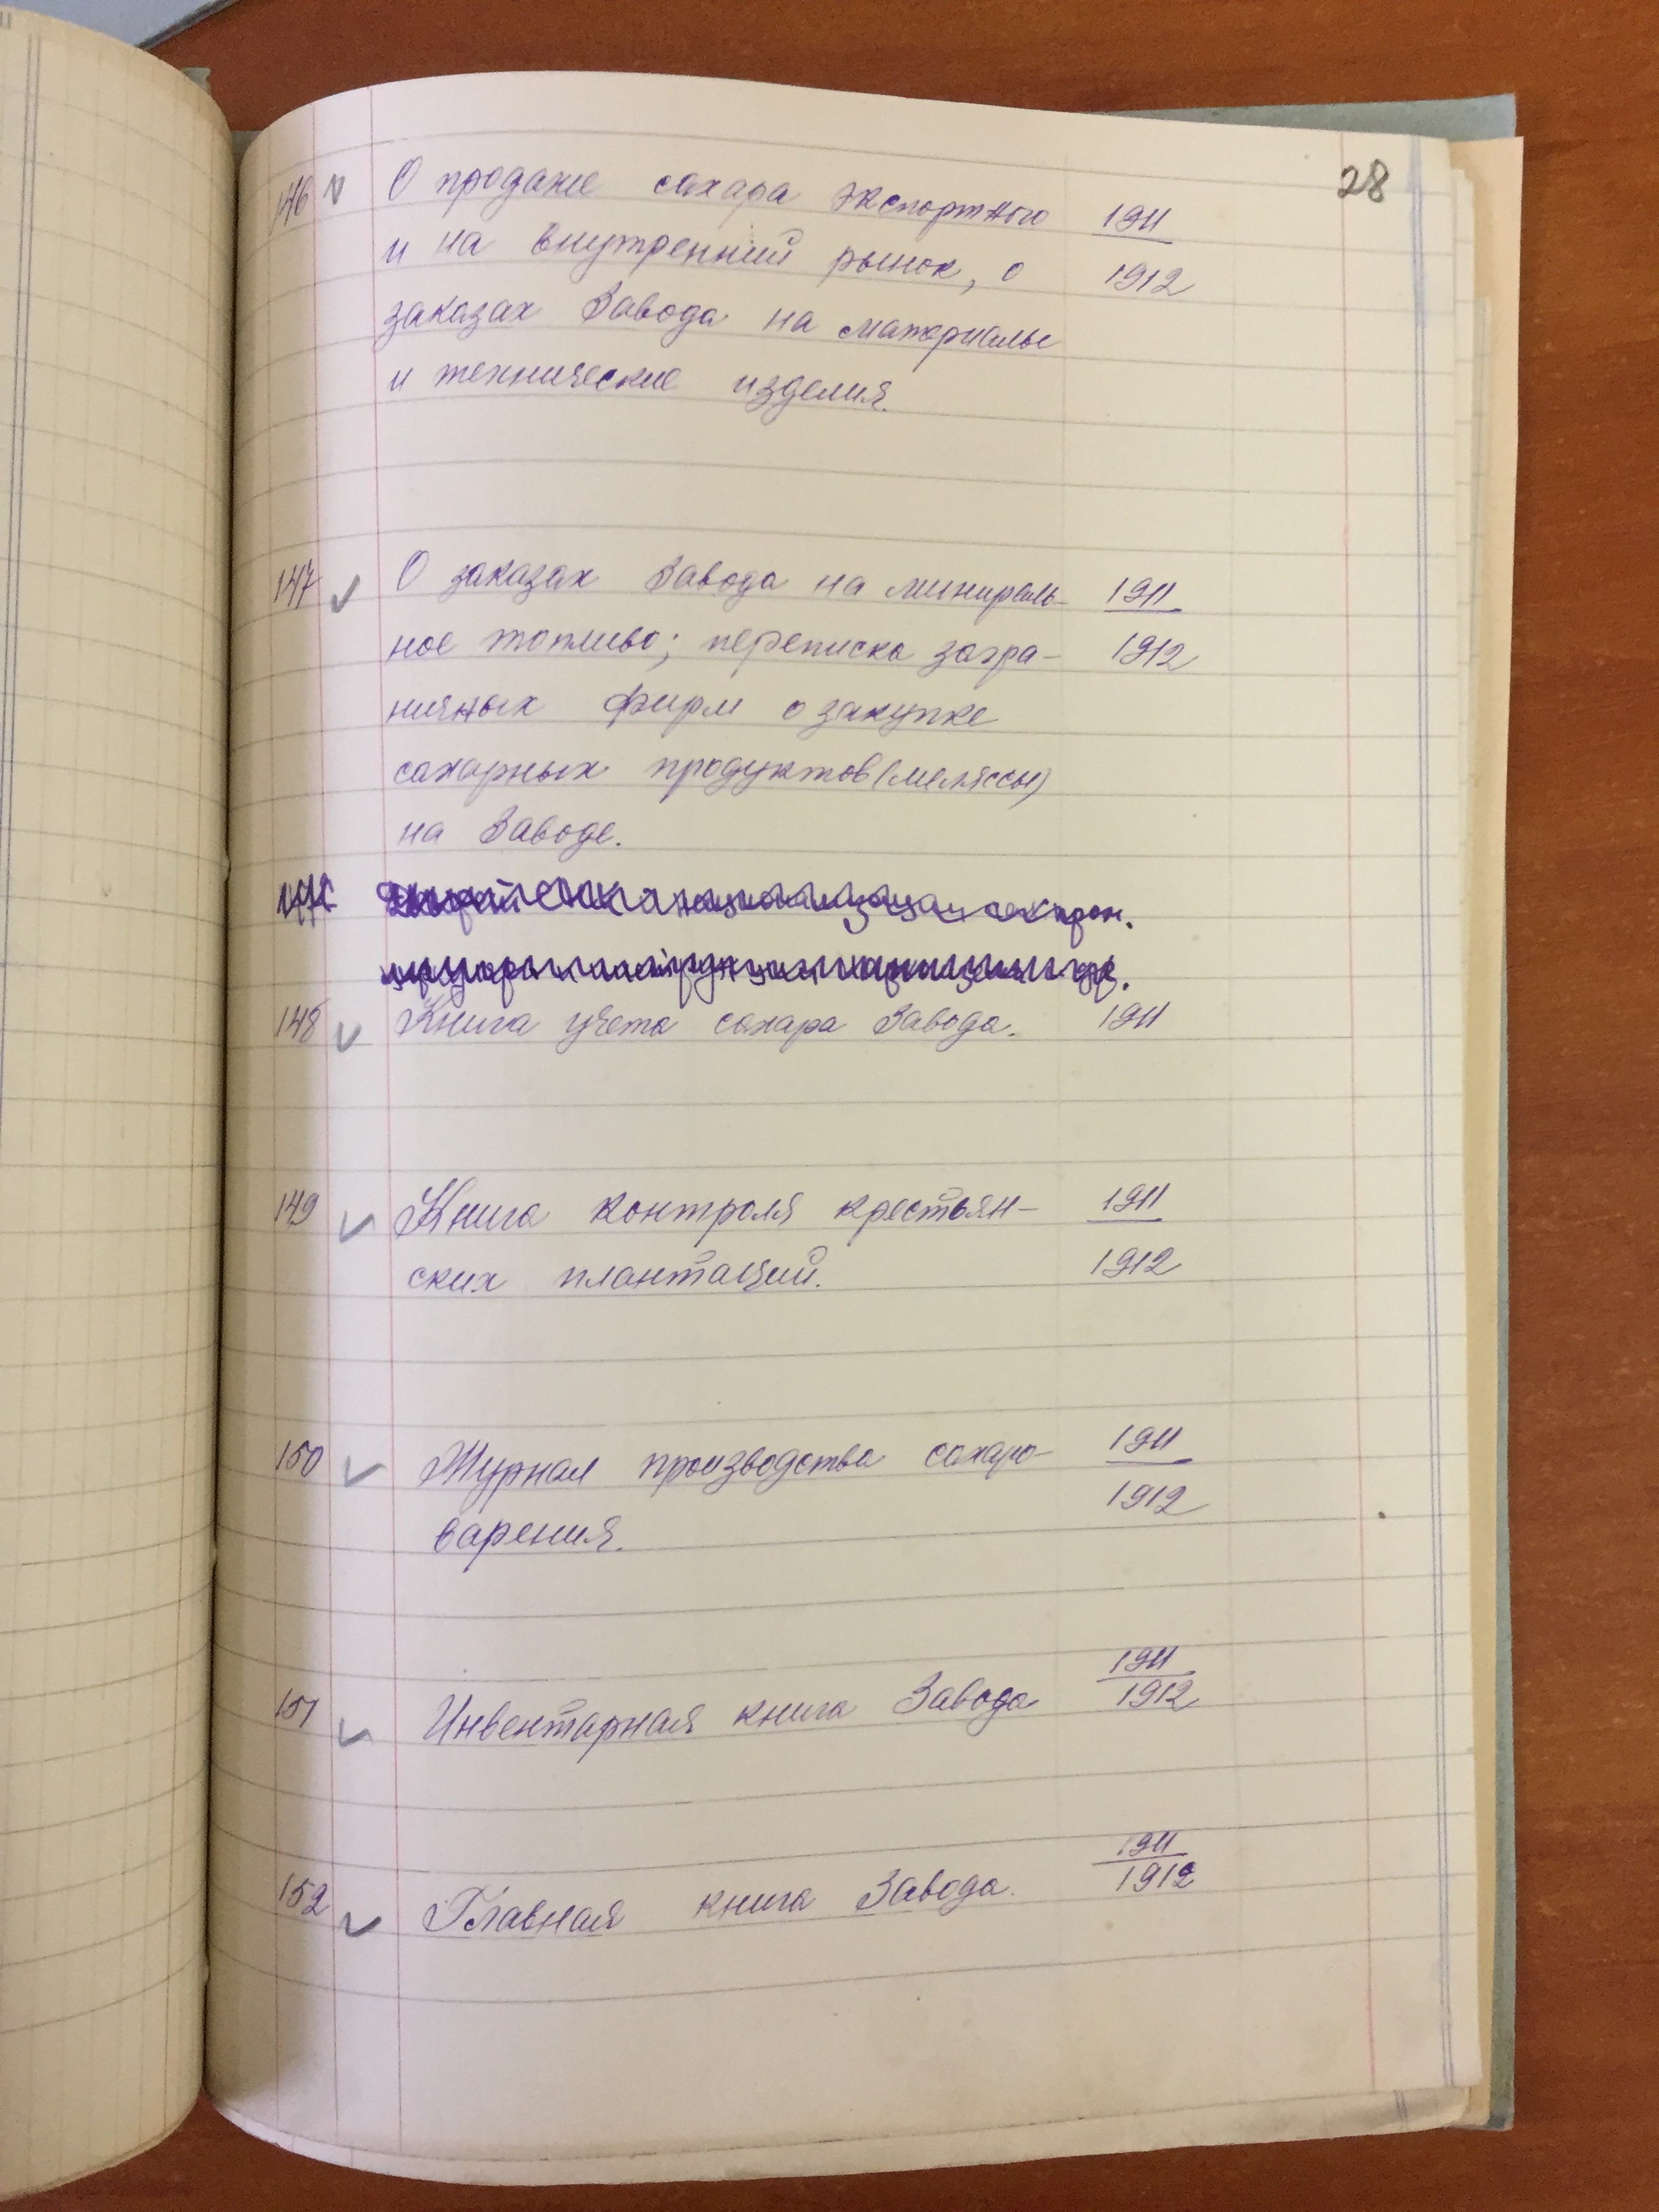 28
146 О продаже сахара экспортного 1911
и на внутренний рынок, о 1912
заказах Завода на материалы
и технические изделия.
147 О заказах Завода на минираль- 1911
ное топливо; переписка загра- 1912
ничных фирм о закупке
сахарных продуктов (меляссы)
на Заводе.
148 Книга учета сахара Завода. 1911
149 Книга контроля крестьян- 1911
ских плантаций. 1912
150 Журнал производства сахаро- 1911
варения. 1912
1911
151 Инвентарная книга Завода 1912
1911
152 Главная книга Завода. 1912